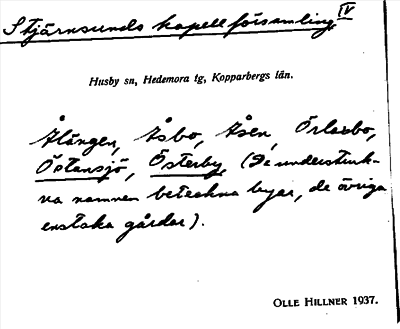 Stjärnsunds kapellförsamling. IV
Husby sn, Hedemora tg, Kopparbergs län.
Ålängen, Åsbo, Åsen, Örlasbo,
Östansjö, Österby, (De understruk-
na namnen beteckna byar, de övriga
enstaka gårdar).
OLLE HILLNER 1937.